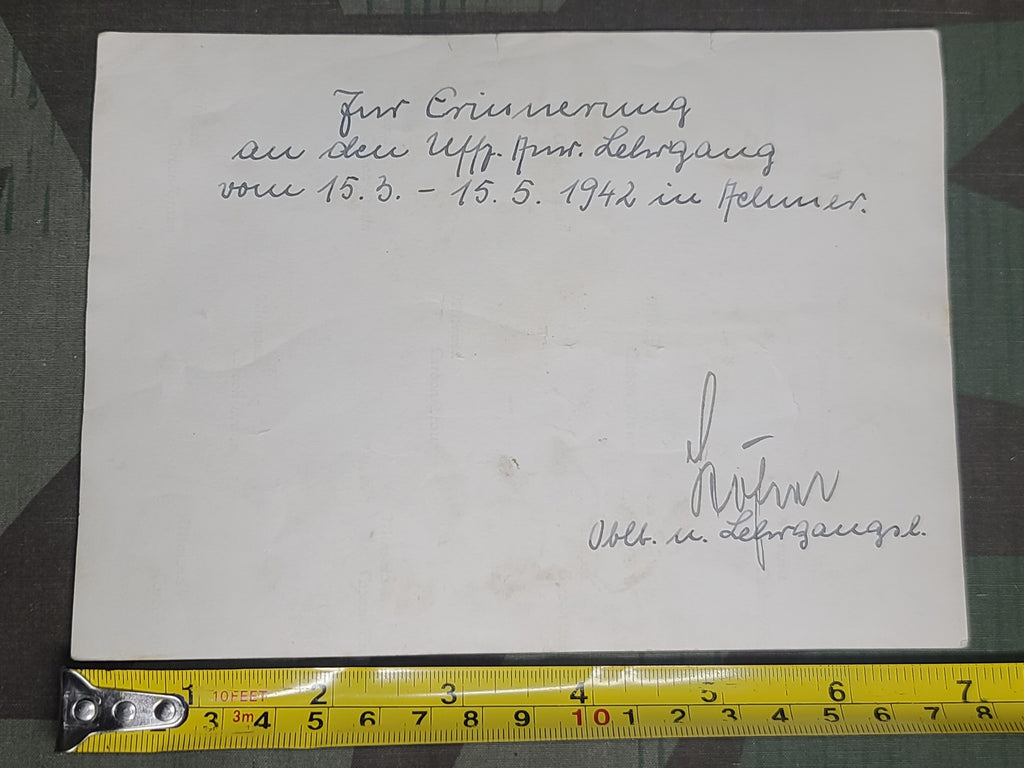 Zur Erinnerung
an den Uffz. Anw. Lehrgang
vom 15.3. - 15.5. 1942 in Achmer.
Oblt. u. Lehrgangsl.
1 10FEET 2 3 4 5 6 7
3 3m 4 5 6 7 8 9 10 1 2 3 4 5 6 7 8